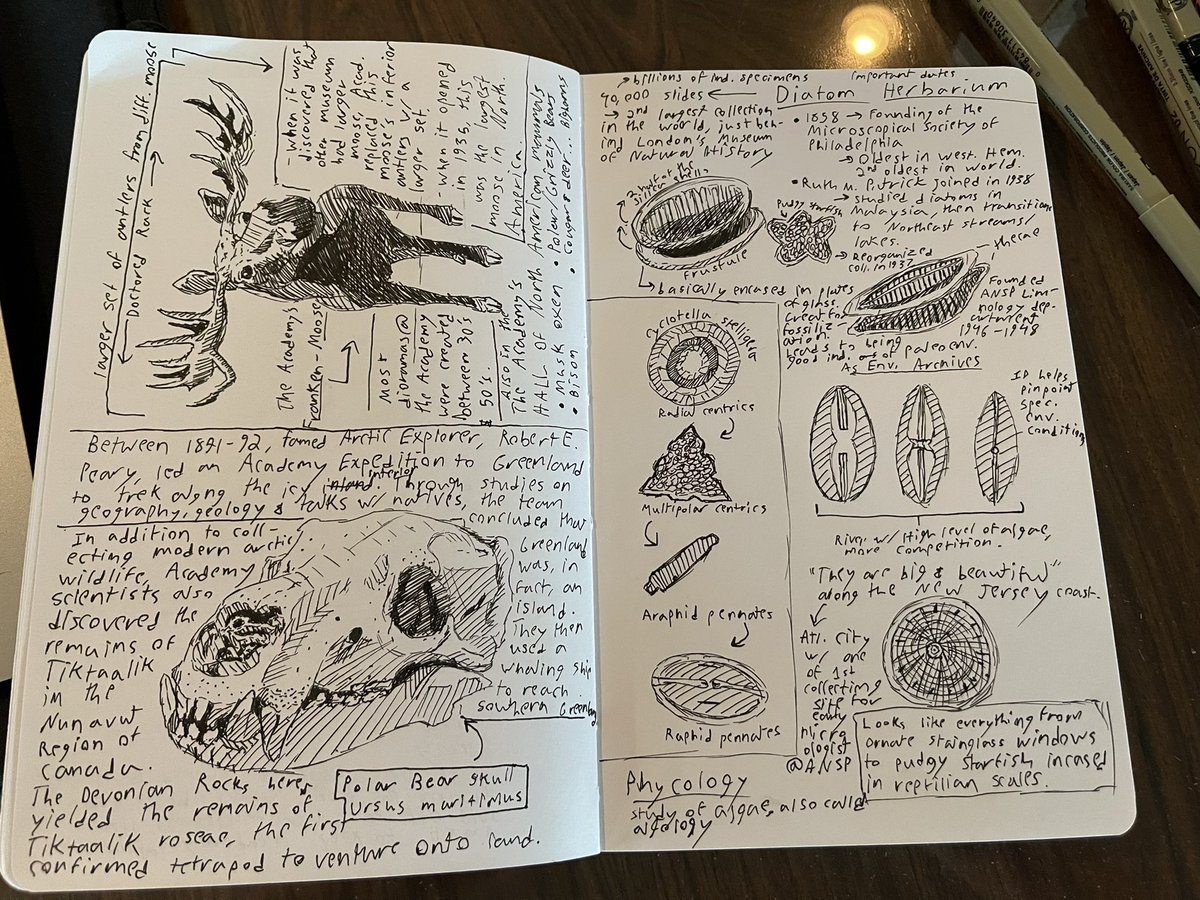 larger set of antlers from diff. moose
Doctored Rack
- when it was
discovered that
other museum
had larger
moose, Acad.
replaced this
moose's inferior
antlers w/a
larger set.
- when it opened
in 1935, this
was the largest
moose in North
America.
The Academy's
Franken-Moose
Most
dioramas@
the Academy
were created
between 30's
& 50's.
Also in the
The Academy's
HALL OF North American mammals
• Musk oxen
• Bison
• Polar/Grizzly Bears
• Cougar & deer... Bighorns
Between 1891-92, famed Arctic Explorer, Robert E.
Peary, led an Academy Expedition to Greenland
to trek along the icy interior. Through studies on
geography, geology & talks w/ natives, the team
concluded that
Greenland
was, in
fact, an
island.
They then
used a
whaling ship
to reach
southern Greenland
In addition to coll-
ecting modern arctic
wildlife, Academy
scientists also
discovered the
remains of
Tiktaalik
in the
Nunavut
Region of
Canada.
The Devonian Rocks here
yielded the remains of
Tiktaalik roseae, the first
confirmed tetrapod to venture onto land.
Polar Bear skull
Ursus maritimus
billions of ind. specimens
40,000 slides
Diatom Herbarium
2nd largest collection
in the world, just beh-
ind London's Museum
of Natural History
important dates
• 1858 → Founding of the
Microscopical Society of
Philadelphia
→ Oldest in West. Hem.
2nd oldest in world.
• Ruth M. Patrick joined in 1938
→ studied diatoms in
Malaysia, then transitions
to Northeast streams/
lakes.
→ Reorganized
coll. in 1937
Founded
ANSP Lim-
nology dep-
artment
1946-1948
Frustule
pudgy starfish
thecae
basically encased in plates
of glass.
Great for
fossiliz-
ation.
Leads to being
good ind. of paleoenv.
As Env. Archives
Cyclotella stelligera
Radial centrics
Multipolar centrics
Araphid pennates
Raphid pennates
ID helps
pinpoint
spec.
env.
conditions
River w/ High level of algae,
more competition.
"They are big & beautiful"
along the New Jersey coast.
Atl. City
w/ one
of 1st
collecting
site for
early
micro
ologist
@ANSP
Looks like everything from
ornate stainglass windows
to pudgy starfish incased
in reptilian scales.
Phycology
study of algae, also called
algology